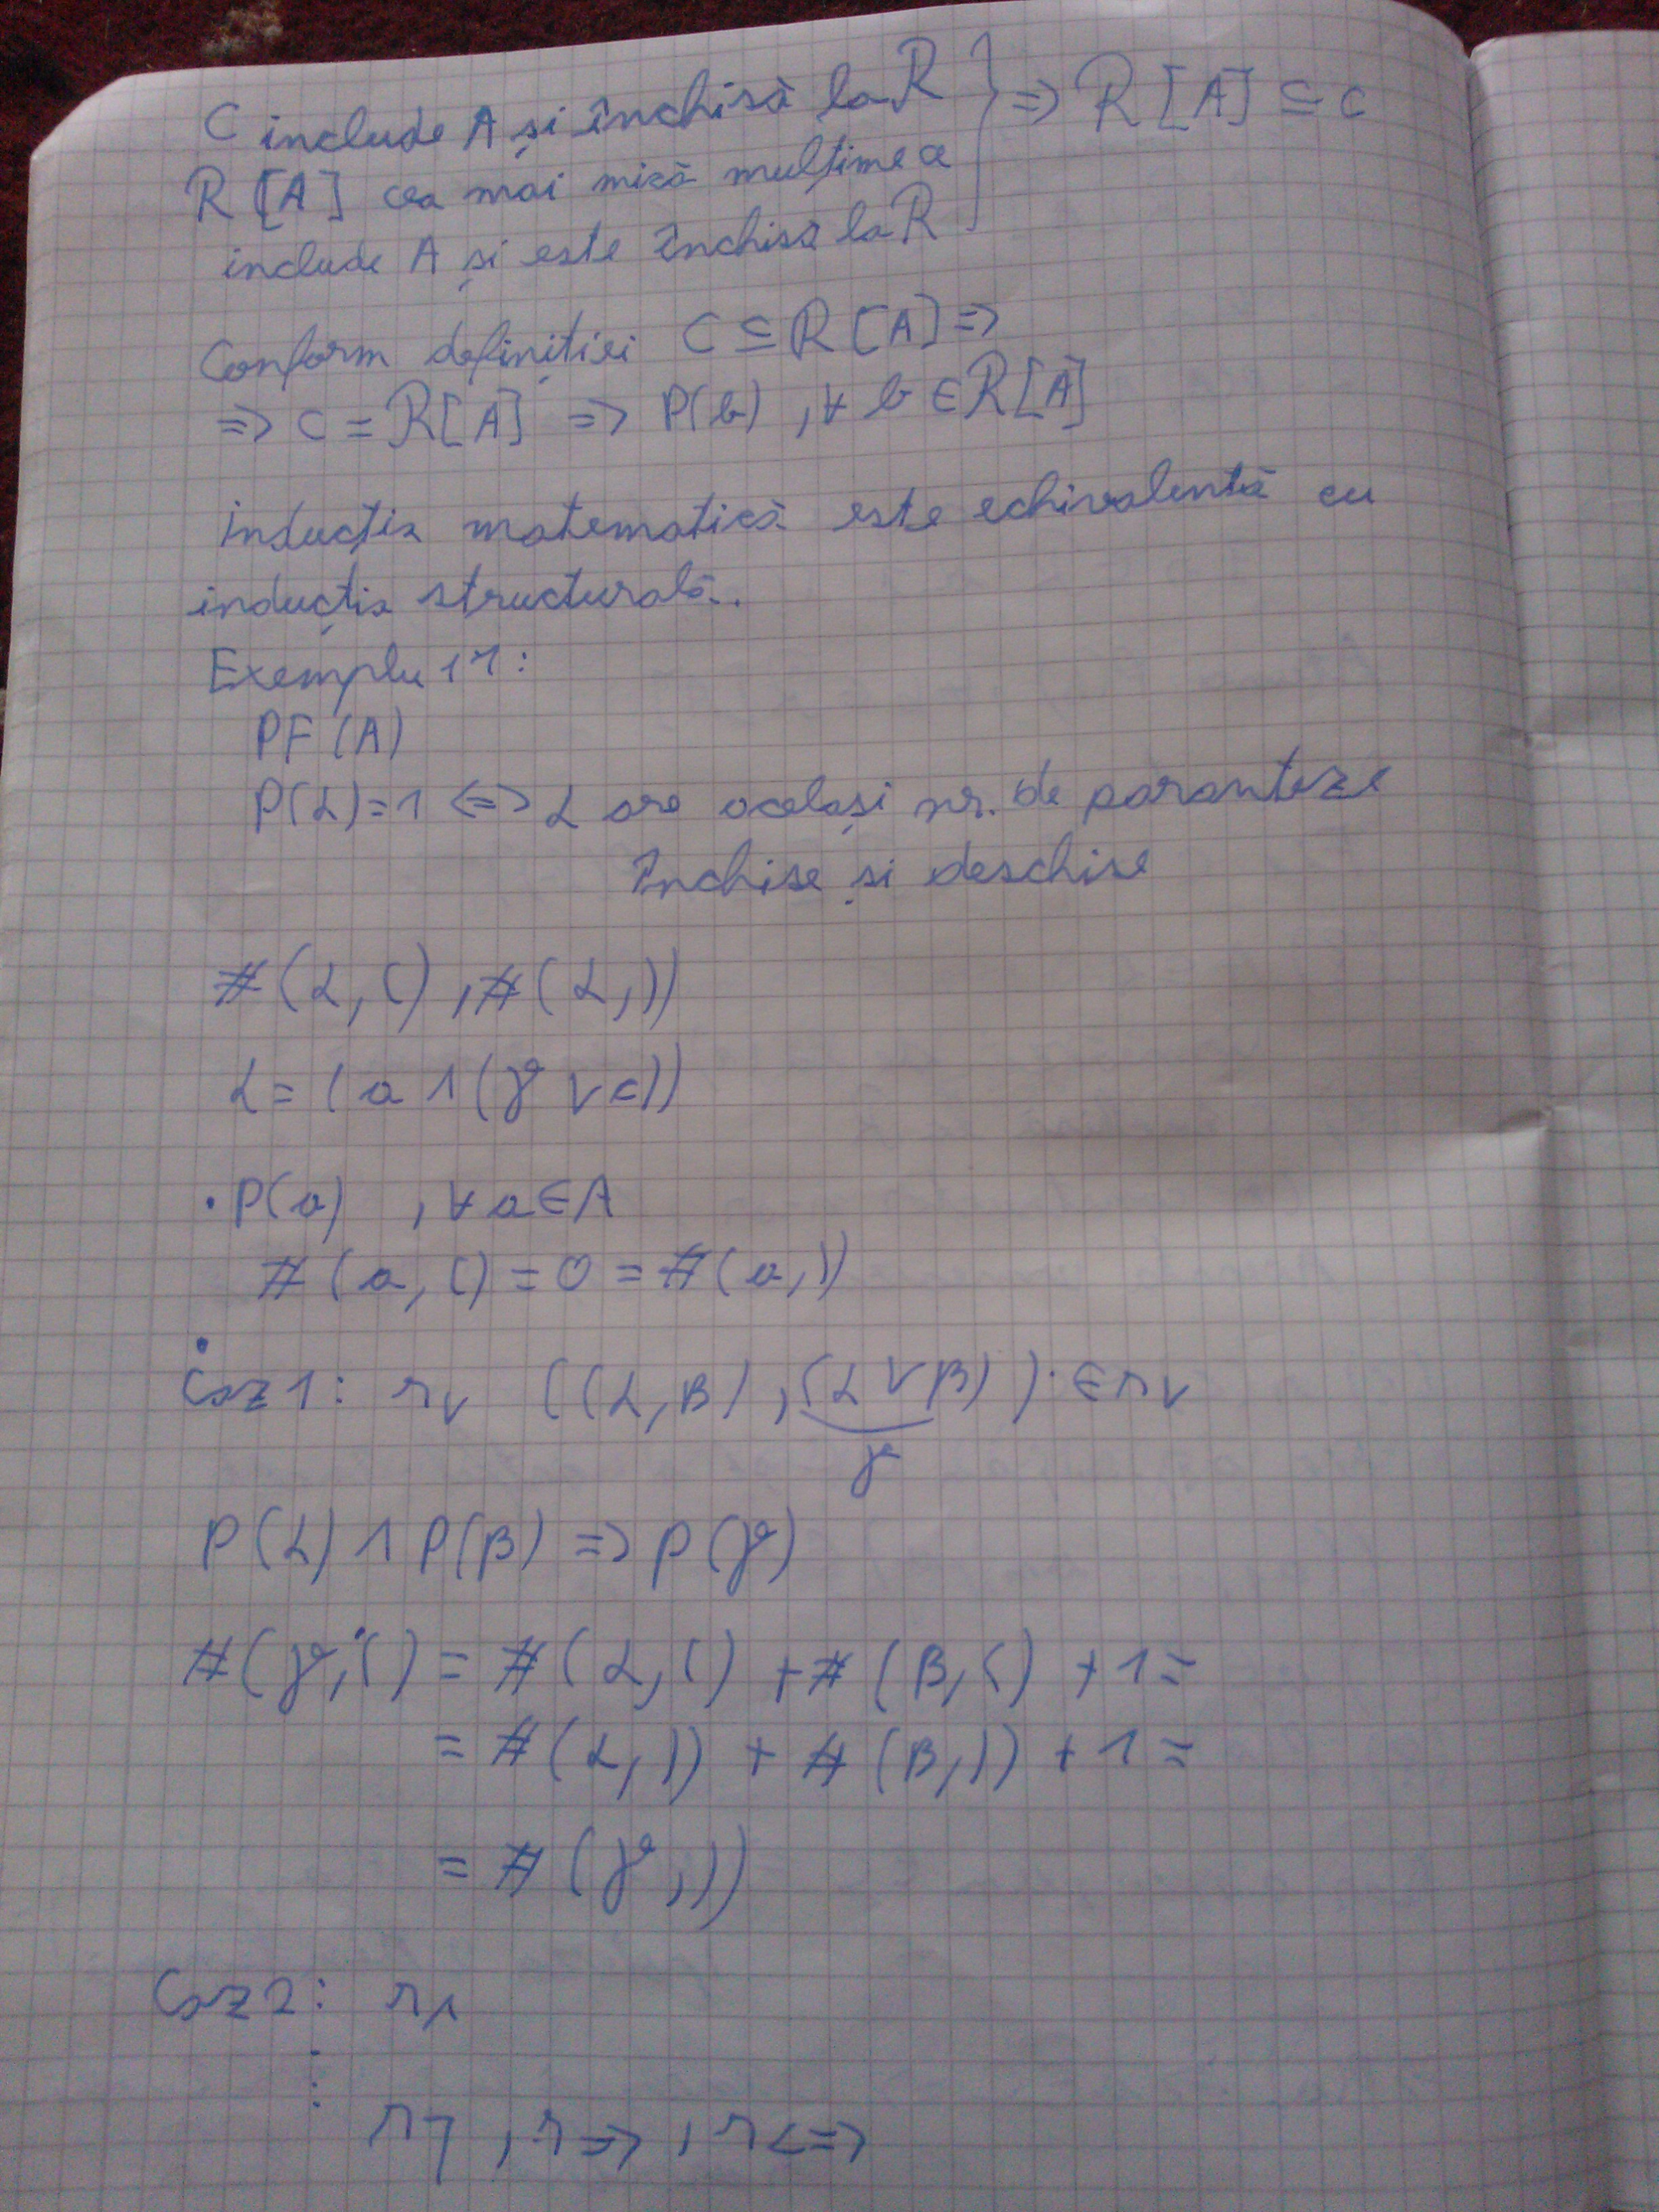 C include A și închisă la R } ⇒ R[A] ⊆ C
R[A] cea mai mică mulțime ce
include A și este închisă la R
Conform definiției C ⊆ R[A] ⇒
⇒ C = R[A] ⇒ P(b) , ∀ b ∈ R[A]
Inducția matematică este echivalentă cu
inducția structurală.
Exemplu 11:
PF(A)
P(α)=1 ⇔ α are același nr. de paranteze
închise și deschise
#(α, () , #(α, ))
α = (a ∧ (γ ∨ c))
• P(a) , ∀ a ∈ A
#(a, () = 0 = #(a, ))
• Caz 1: r∨ ((α, β) , (α ∨ β)) ∈ r∨
γ
P(α) ∧ P(β) ⇒ P(γ)
#(γ, () = #(α, () + #(β, () + 1 =
= #(α, )) + #(β, )) + 1 =
= #(γ, ))
Caz 2: r∧
⋮
r¬ , r⇒ , r⇔